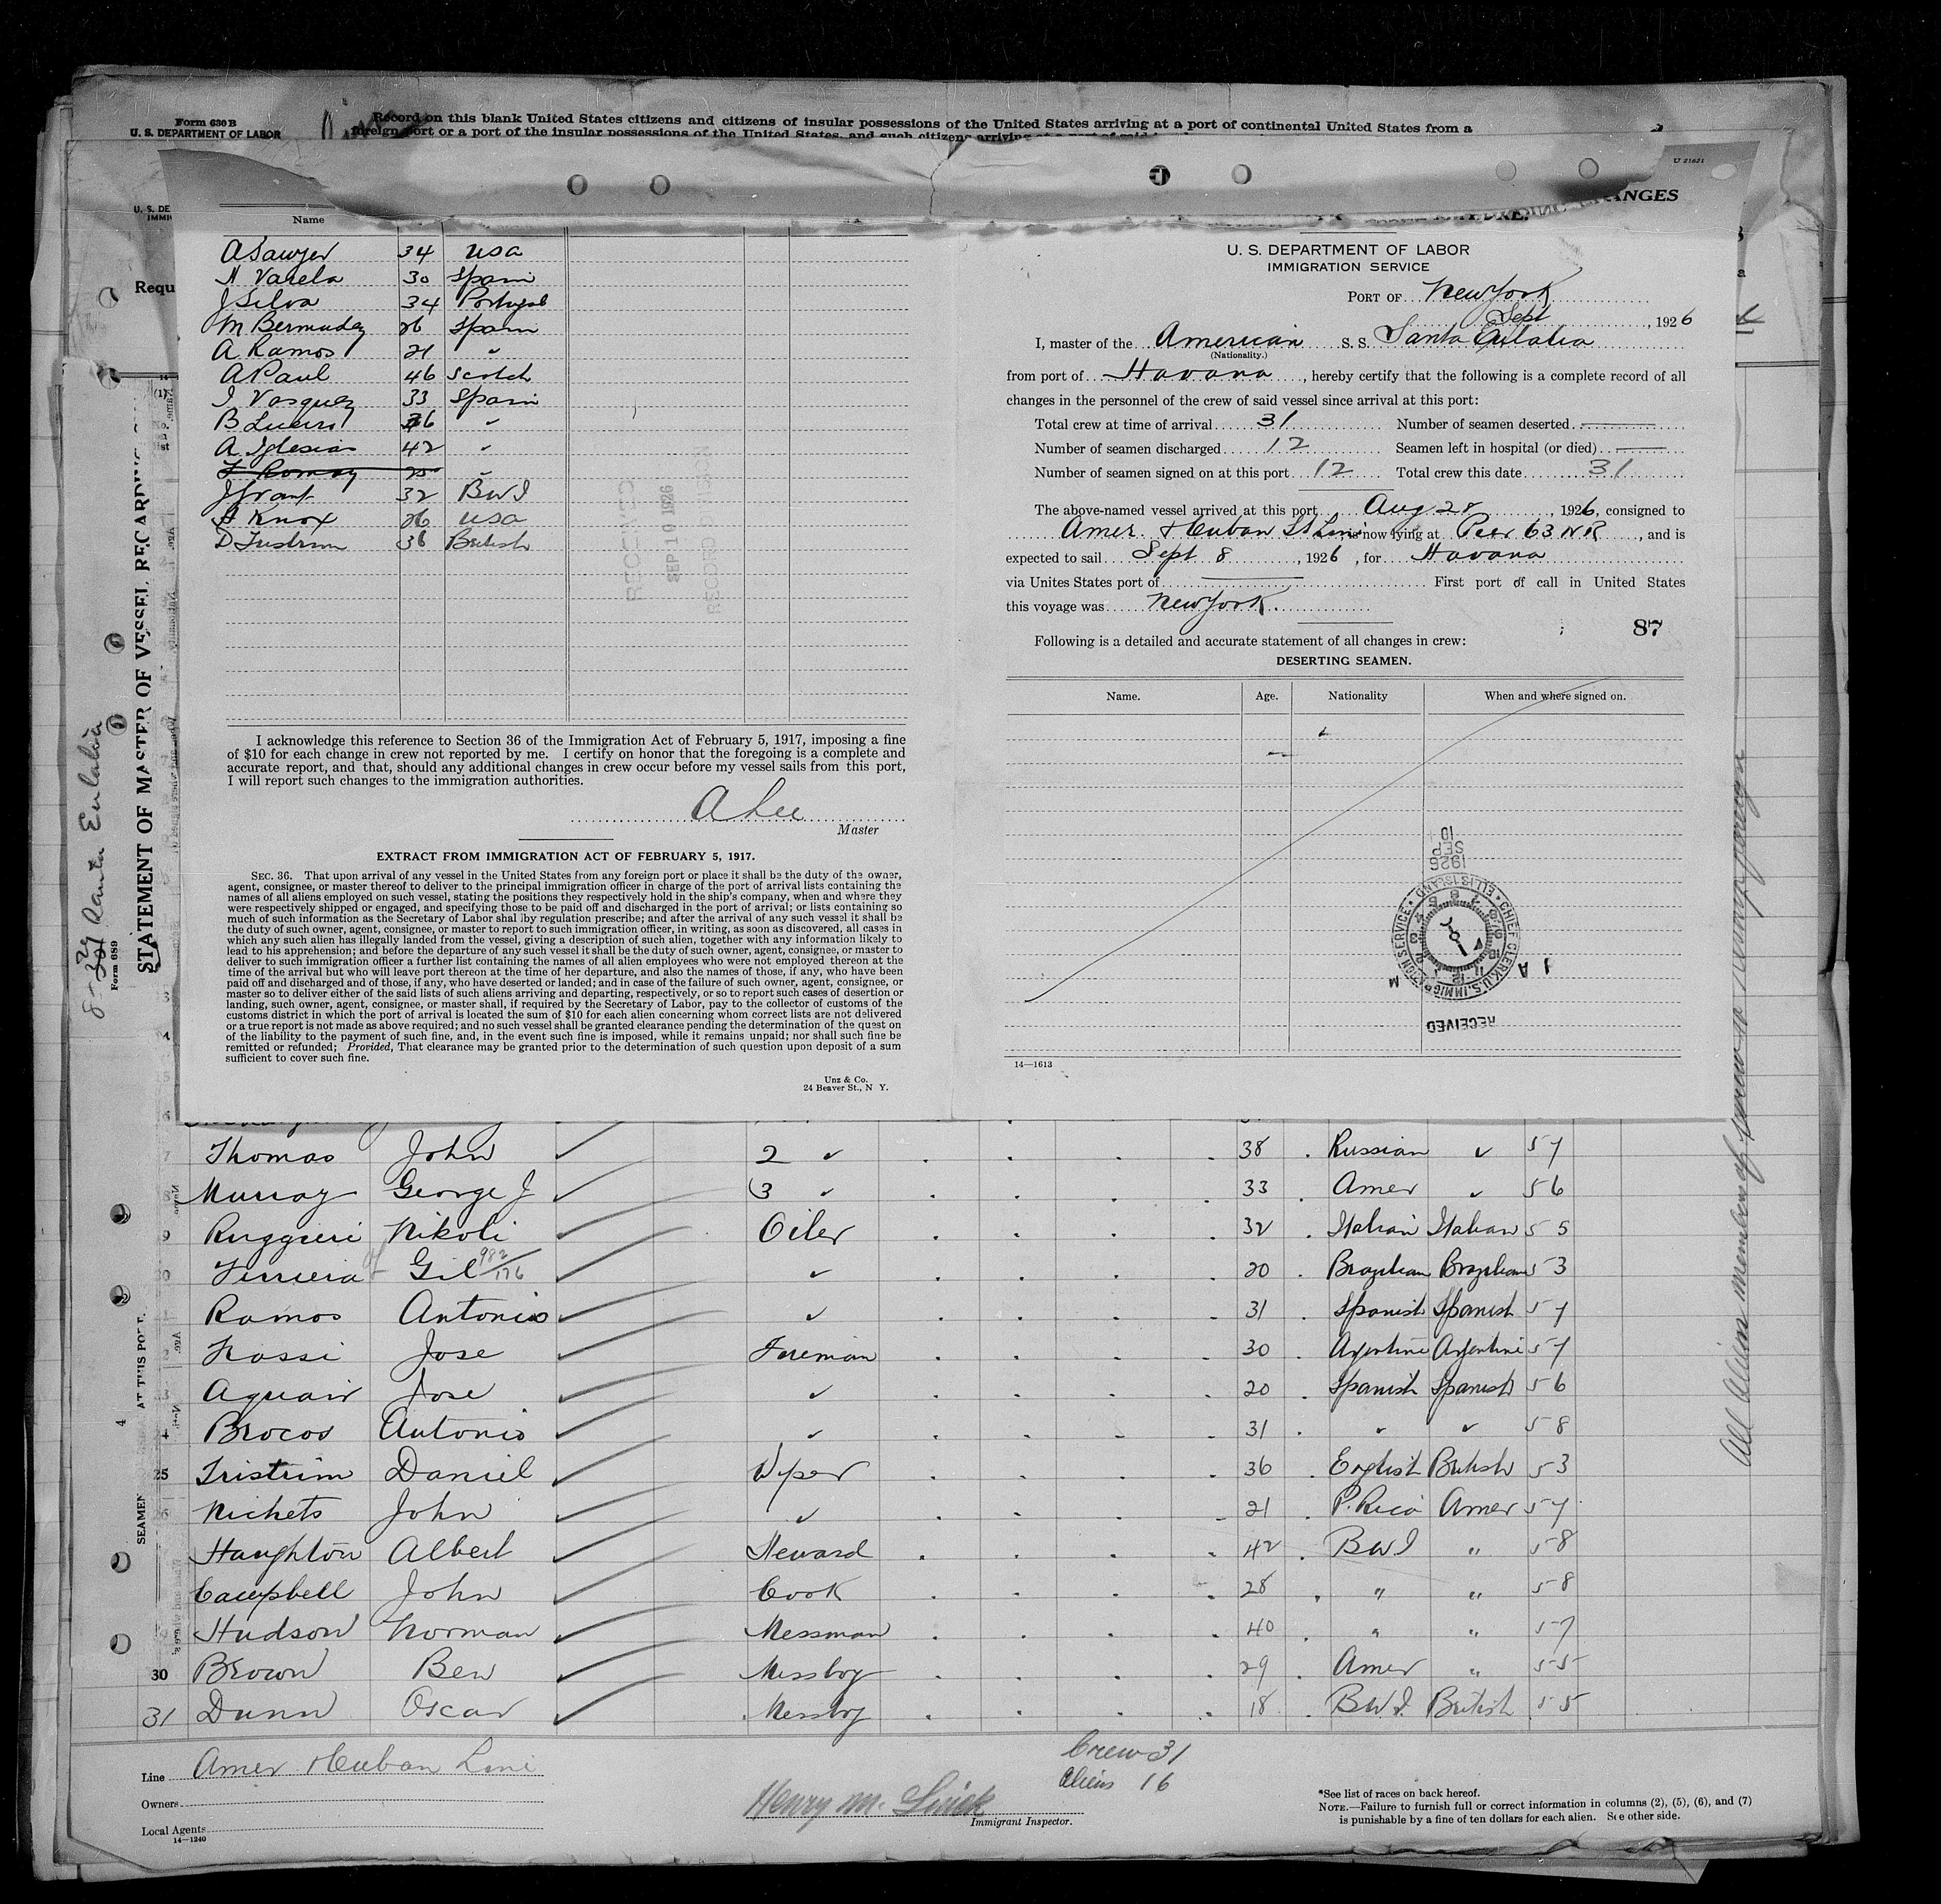 Form 630 B
U. S. DEPARTMENT OF LABOR
Record on this blank United States citizens and citizens of insular possessions of the United States arriving at a port of continental United States from a
foreign port or a port of the insular possessions of the United States, and such citizens arriving
U 21621
U. S. DE
IMMI
Requ
Name
A Sawyer 34 USA
A Varela 30 Spain
J Silva 34 Portugal
M Bermudez 26 Spain
A Ramos 21 "
A Paul 46 Scotch
J Vasquez 33 Spain
B 36 "
A. Iglesias 42 "
J Grant 32 BWI
A Knox 26 USA
D Tristrim 36 British
RECEIVED
SEP 10 1926
RECORD DIVISION
I acknowledge this reference to Section 36 of the Immigration Act of February 5, 1917, imposing a fine
of $10 for each change in crew not reported by me. I certify on honor that the foregoing is a complete and
accurate report, and that, should any additional changes in crew occur before my vessel sails from this port,
I will report such changes to the immigration authorities.
A Lee
Master
EXTRACT FROM IMMIGRATION ACT OF FEBRUARY 5, 1917.
SEC. 36. That upon arrival of any vessel in the United States from any foreign port or place it shall be the duty of the owner,
agent, consignee, or master thereof to deliver to the principal immigration officer in charge of the port of arrival lists containing the
names of all aliens employed on such vessel, stating the positions they respectively hold in the ship's company, when and where they
were respectively shipped or engaged, and specifying those to be paid off and discharged in the port of arrival; or lists containing so
much of such information as the Secretary of Labor shal lby regulation prescribe; and after the arrival of any such vessel it shall be
the duty of such owner, agent, consignee, or master to report to such immigration officer, in writing, as soon as discovered, all cases in
which any such alien has illegally landed from the vessel, giving a description of such alien, together with any information likely to
lead to his apprehension; and before the departure of any such vessel it shall be the duty of such owner, agent, consignee, or master to
deliver to such immigration officer a further list containing the names of all alien employees who were not employed thereon at the
time of the arrival but who will leave port thereon at the time of her departure, and also the names of those, if any, who have been
paid off and discharged and of those, if any, who have deserted or landed; and in case of the failure of such owner, agent, consignee, or
master so to deliver either of the said lists of such aliens arriving and departing, respectively, or so to report such cases of desertion or
landing, such owner, agent, consignee, or master shall, if required by the Secretary of Labor, pay to the collector of customs of the
customs district in which the port of arrival is located the sum of $10 for each alien concerning whom correct lists are not delivered
or a true report is not made as above required; and no such vessel shall be granted clearance pending the determination of the quest on
of the liability to the payment of such fine, and, in the event such fine is imposed, while it remains unpaid; nor shall such fine be
remitted or refunded; Provided, That clearance may be granted prior to the determination of such question upon deposit of a sum
sufficient to cover such fine.
Unz & Co.
24 Beaver St., N Y.
ANGES
U. S. DEPARTMENT OF LABOR
IMMIGRATION SERVICE
PORT OF New York
Sept , 1926
I, master of the American S. S. Santa Eulalia
(Nationality.)
from port of Havana, hereby certify that the following is a complete record of all
changes in the personnel of the crew of said vessel since arrival at this port:
Total crew at time of arrival 31 Number of seamen deserted
Number of seamen discharged 12 Seamen left in hospital (or died)
Number of seamen signed on at this port 12 Total crew this date 31
The above-named vessel arrived at this port Aug 28, 1926, consigned to
Amer. & Cuban SS Line is now lying at Pier 63 NR, and is
expected to sail Sept 8, 1926, for Havana
via Unites States port of First port of call in United States
this voyage was New York.
87
Following is a detailed and accurate statement of all changes in crew:
DESERTING SEAMEN.
Name. Age. Nationality When and where signed on.
1926
SEP
10
CHIEF CLERK U.S. IMMIGRATION SERVICE ELLIS ISLAND
A M
RECEIVED
14—1613
8-29 Santa Eulalia
Form 689
STATEMENT OF MASTER OF VESSEL RECARDING
SEAMEN AT THIS PORT.
Thomas John 2 " 38 Russian " 57
Murray George J 3 " 33 Amer " 56
Ruggieri Nikoli Oiler 32 Italian Italian 55
Ferreira Gil 982/176 " 20 Brazilian Brazilian 53
Ramos Antonio " 31 Spanish Spanish 57
Rossi Jose Fireman 30 Argentine Argentine 57
Aguair Jose " 20 Spanish Spanish 56
4 Brocos Antonio " 31 " " 58
25 Tristrim Daniel Wiper 36 English British 53
26 Nichets John " 21 P. Rico Amer 57
Haughton Albert Steward 42 BWI " 58
Campbell John Cook 28 " " 58
Hudson Norman Messman 40 " " 57
30 Brown Ben Messboy 29 Amer " 55
31 Dunn Oscar Messboy 18 B.W.I. British 55
All Alien members of crew
Line Amer & Cuban Line
Owners
Local Agents
14—1240
Henry M.
Immigrant Inspector.
Crew 31
Aliens 16
*See list of races on back hereof.
NOTE.—Failure to furnish full or correct information in columns (2), (5), (6), and (7)
is punishable by a fine of ten dollars for each alien. See other side.